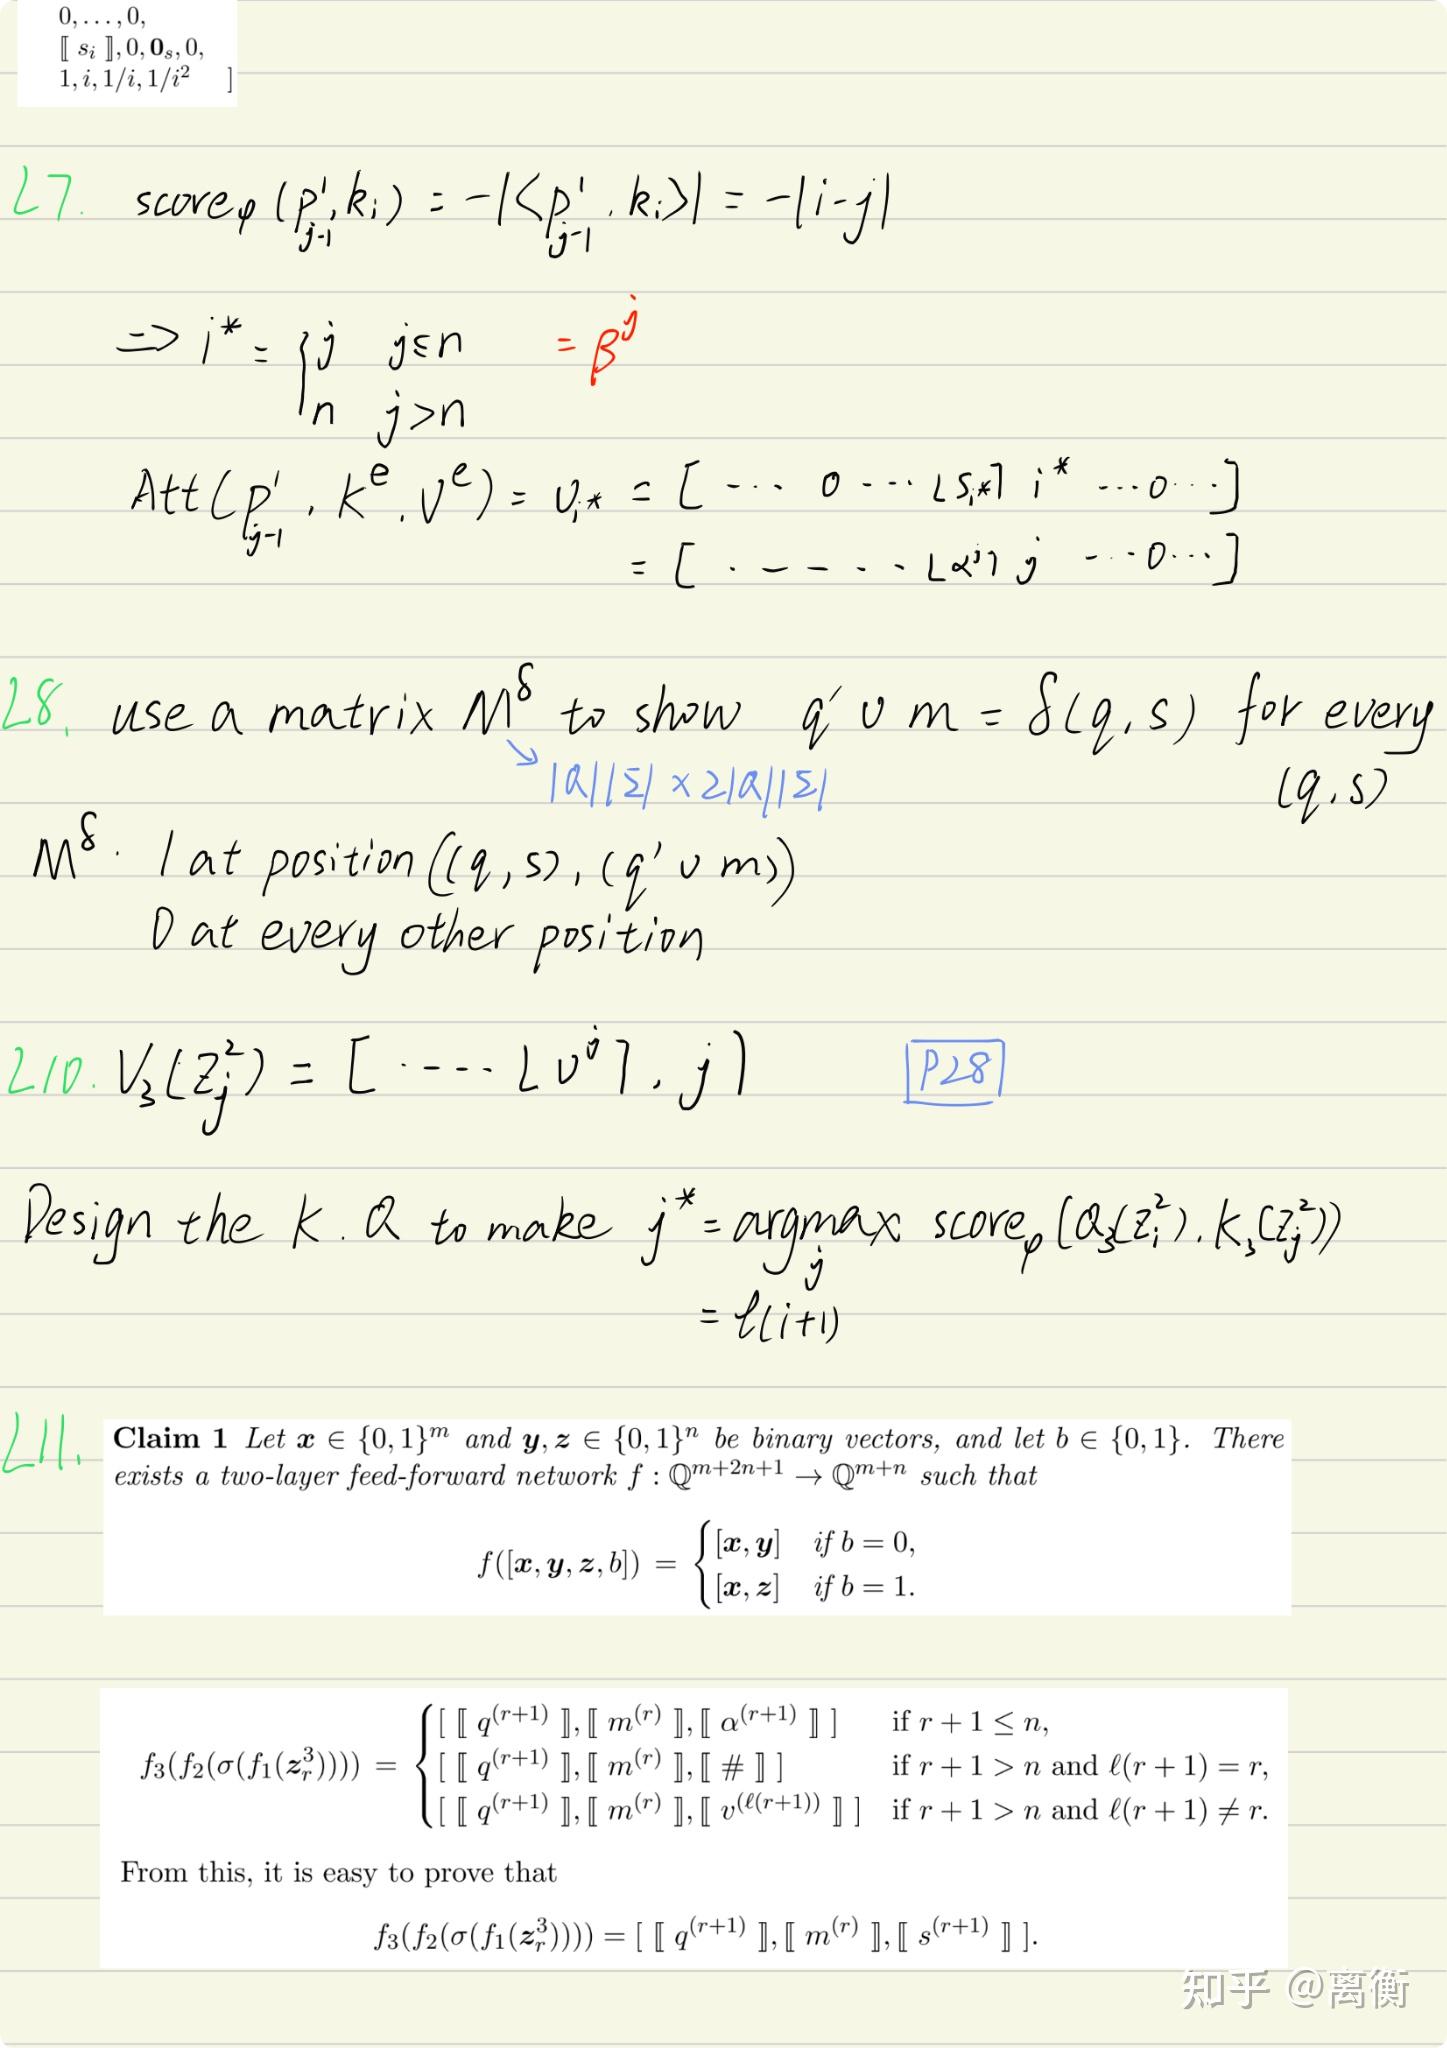 0, . . . , 0,
⟦ sᵢ ⟧, 0, 0ₛ, 0,
1, i, 1/i, 1/i² ]
L7. score_φ (p'_{j-1}, kᵢ) = -|<p'_{j-1}, kᵢ>| = -|i-j|
⇒ i* = { j j≤n = β^j
n j>n
Att(p'_{j-1}, K^e, V^e) = v_{i*} = [ ---- 0 ··· ⟦S_{i*}⟧ i* ---0--- ]
= [ · - - - · - ⟦α^j⟧ j ---0--- ]
L8. use a matrix M^δ to show q' ∪ m = δ(q, s) for every
(q, s)
↘ |Q||Σ| × 2|Q||Σ|
M^δ. 1 at position ((q, s), (q' ∪ m))
0 at every other position
L10. V₃(Z_j²) = [ ·--- ⟦v^j⟧, j ] P28
Design the K. Q to make j* = argmax_j score_φ (Q₃(Zᵢ²), K₃(Z_j²))
= ℓ(i+1)
L11. Claim 1 Let x ∈ {0, 1}^m and y, z ∈ {0, 1}^n be binary vectors, and let b ∈ {0, 1}. There
exists a two-layer feed-forward network f : ℚ^{m+2n+1} → ℚ^{m+n} such that
f([x, y, z, b]) = { [x, y] if b = 0,
[x, z] if b = 1.
f₃(f₂(σ(f₁(z_r³)))) = { [ ⟦ q^{(r+1)} ⟧, ⟦ m^{(r)} ⟧, ⟦ α^{(r+1)} ⟧ ] if r + 1 ≤ n,
[ ⟦ q^{(r+1)} ⟧, ⟦ m^{(r)} ⟧, ⟦ # ⟧ ] if r + 1 > n and ℓ(r + 1) = r,
[ ⟦ q^{(r+1)} ⟧, ⟦ m^{(r)} ⟧, ⟦ v^{(ℓ(r+1))} ⟧ ] if r + 1 > n and ℓ(r + 1) ≠ r.
From this, it is easy to prove that
f₃(f₂(σ(f₁(z_r³)))) = [ ⟦ q^{(r+1)} ⟧, ⟦ m^{(r)} ⟧, ⟦ s^{(r+1)} ⟧ ].
知乎 @离衡